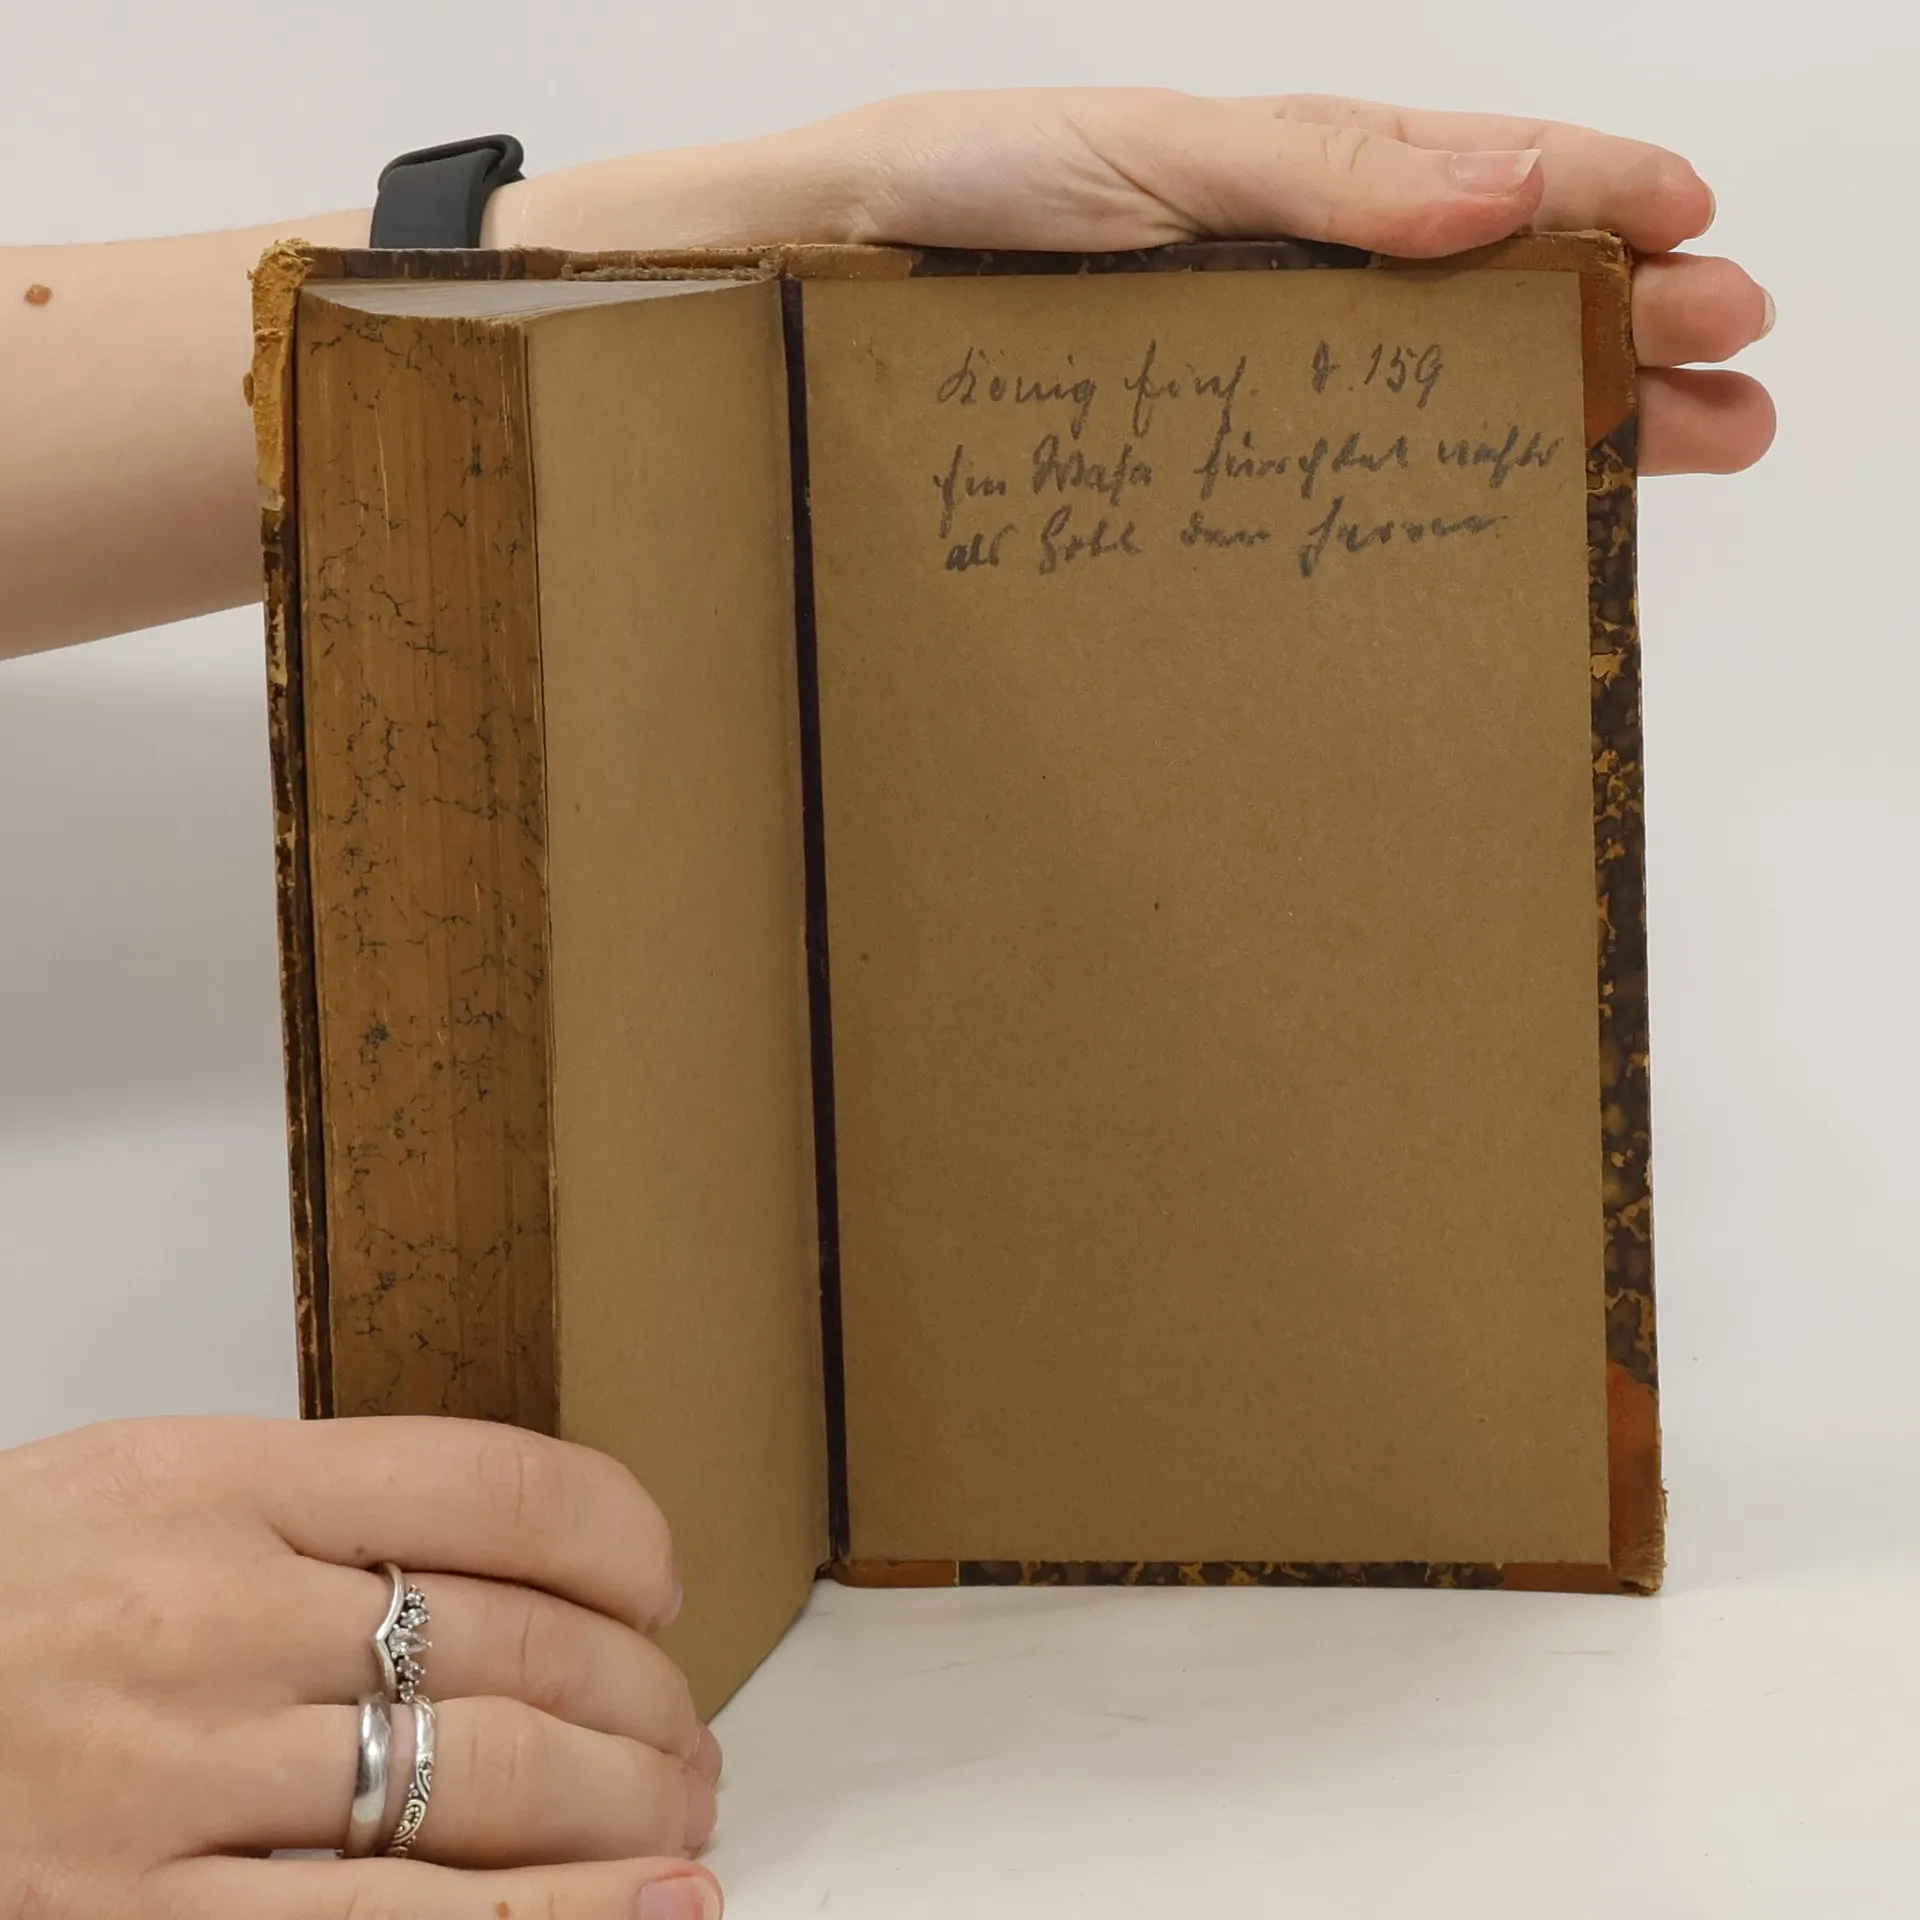 König Erich. S. 159
Ein Wasa fürchtet nichts
als Gott den Herrn.